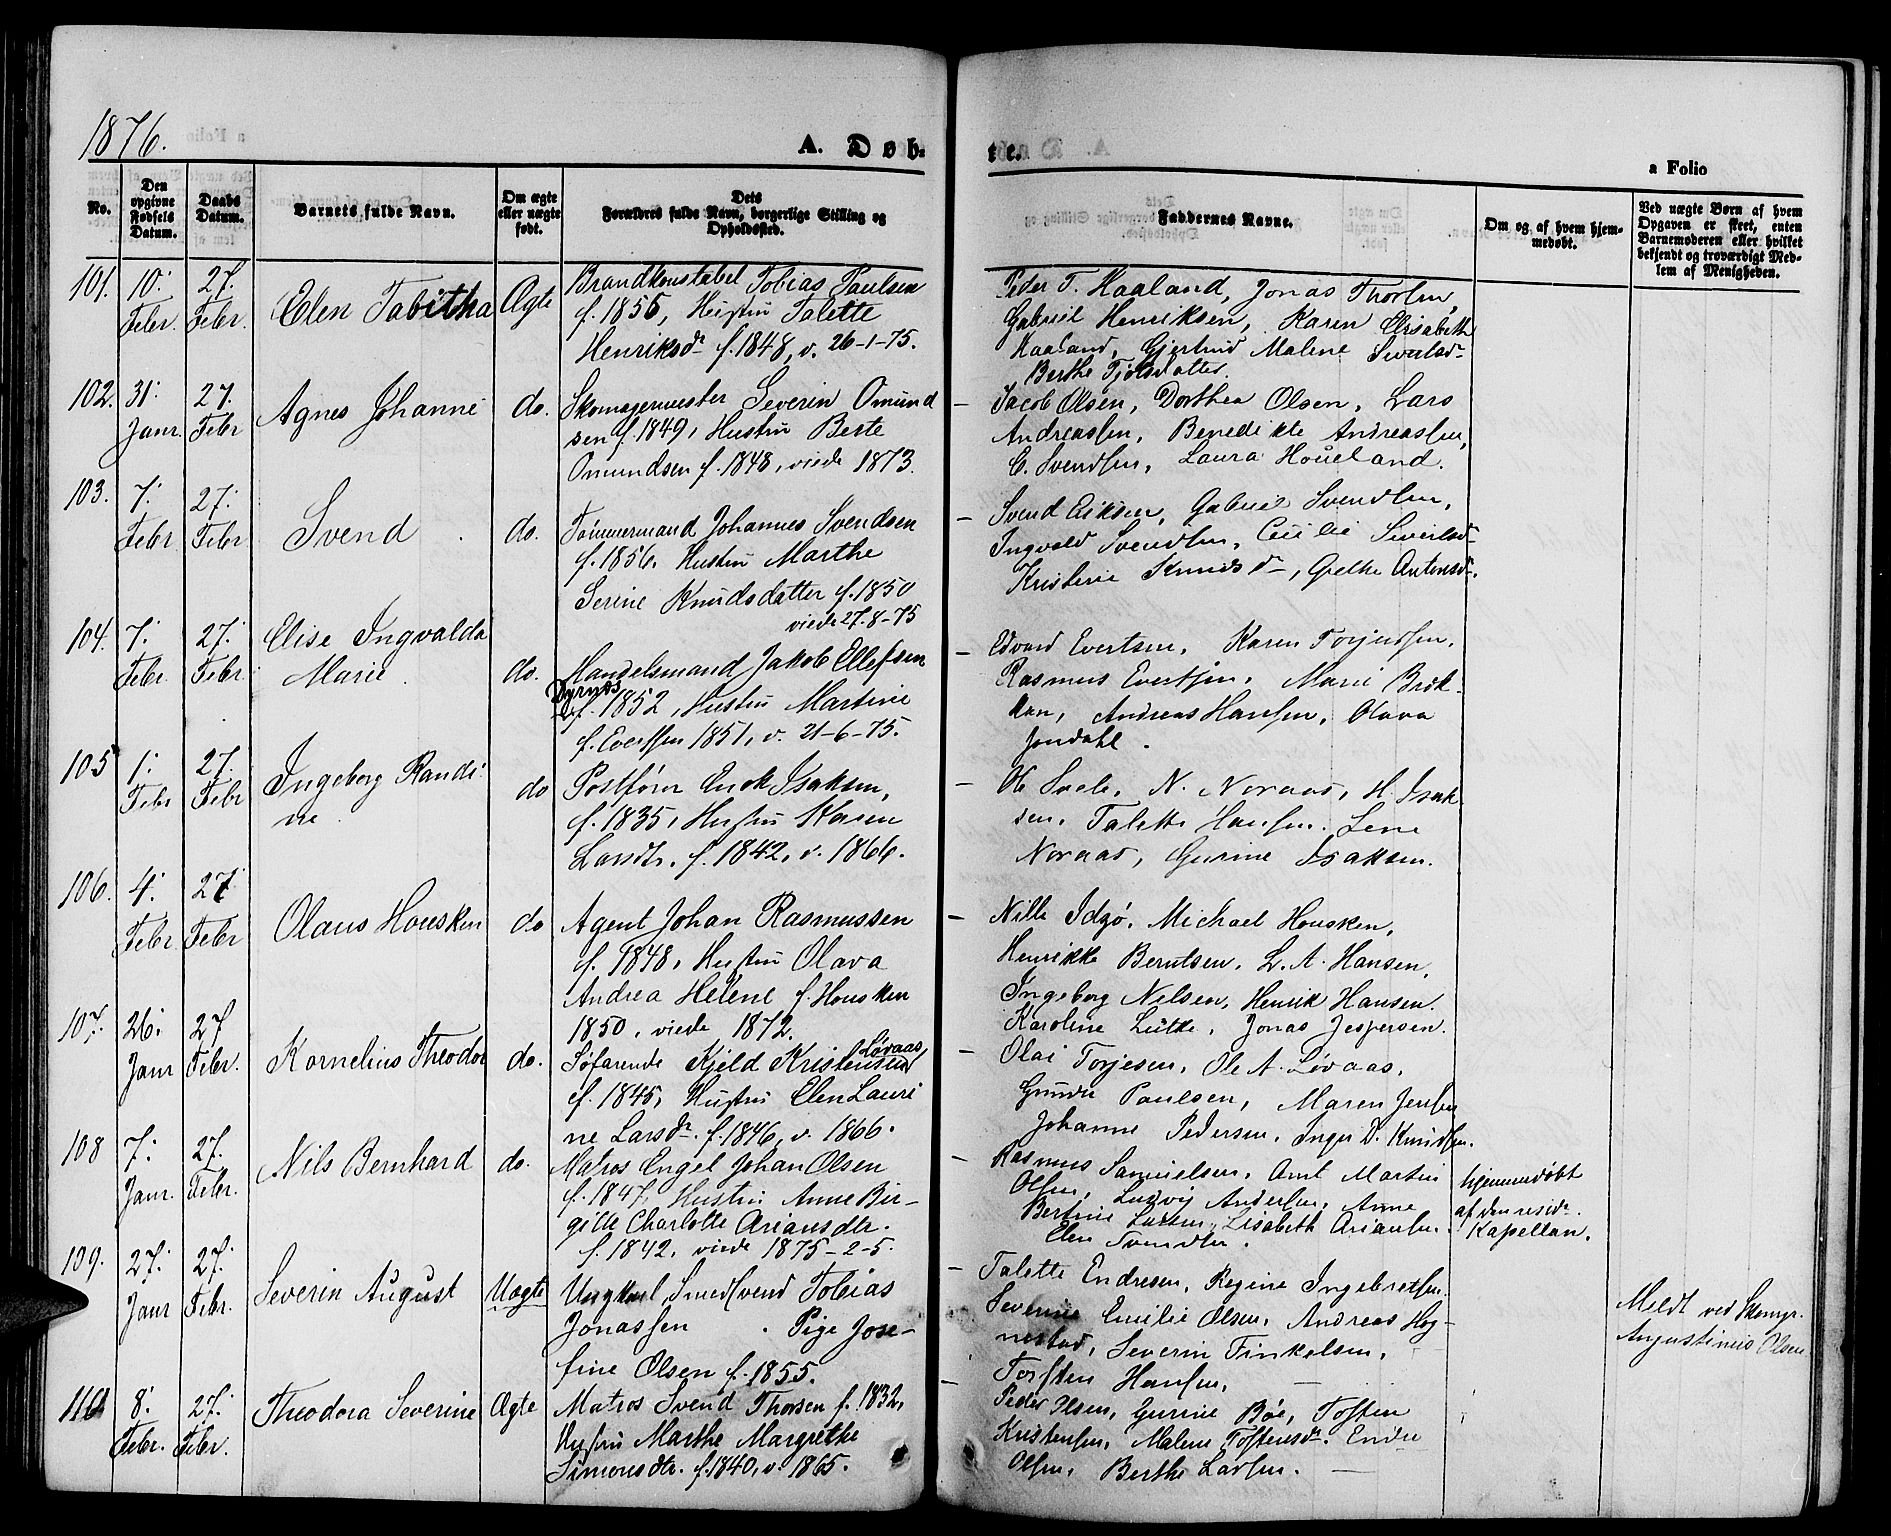 1876.
A. Døb-
te.
a Folio
No.
Den opgivne Fødsels Datum.
Daabs Datum.
Barnets fulde Navn.
Om ægte eller uægte født.
Dets Forældres fulde Navn, borgerlige Stilling og Opholdssted.
Faddernes Navne.
Om og af hvem hjemmedøbt.
Ved uægte Børn af hvem Opgaven er skeet, enten Barnemoderen eller hvilket bekjendt og troværdigt Medlem af Menigheden.
101. 10: Febr. 27. Febr. Elen Tabitha Ægte
Brandkonstabel Tobias Paulsen
f. 1856, Hustru Talette
Henriksdr f. 1848, v. 26-1-75.
Peder T. Haaland, Jonas Thorsen,
Gabriel Henriksen, Karen Elisabeth
Haaland, Gjertrud Malene Sivertsdr
Berthe Tjølsdatter.
102. 31: Janr. 27. Febr Agnes Johanne do.
Skomagermester Severin Omund
sen f. 1849, Hustru Berte
Omundsen f. 1848, viede 1873.
Jacob Olsen, Dorthea Olsen, Lars
Andreassen, Benedikte Andreassen,
C. Svendsen, Laura Houeland.
103. 7: Febr 27: Febr Svend do.
Tømmermand Johannes Svendsen
f. 1856. Hustru Marthe
Serine Knudsdatter f. 1850
viede 27-8-75
Svend Eriksen, Gabriel Svendsen,
Ingvald Svendsen, Cecilie Sivertsdr
Kristine Knudsdr, Grethe Antonsdr.
104. 7: Febr. 27: Febr Elise Ingvalda
Marie do.
Handelsmand Jakob Ellefsen
f. 1852, Hustru Martine
f. Evertsen 1851, v. 21-6-75.
Edvard Evertsen, Karen Torjussen,
Rasmus Evertsen, Marie Brek-
ken, Andreas Hansen, Olava
Jondahl.
105 1: Febr 27. Febr Ingeborg Randi-
ne do
Postfører Enok Isaksen,
f. 1835, Hustru Karen
Larsdtr. f. 1842, v. 1866.
Ole Svele, N. Noraas, H. Isak
sen, Talette Hansen. Lene
Noraas, Gurine Isaksen.
106. 4: Febr 27 Febr Olaus Housken do
Agent Johan Rasmussen
f. 1848, Hustru Olava
Andrea Helene f. Housken
1850, viede 1872.
Nille Idzø, Michael Housken,
Henrikke Berntsen, L. A. Hansen,
Ingeborg Nilsen, Henrik Hansen.
Karoline Lütke, Jonas Jespersen.
107. 26: Janr 27 Febr. Kornelius Theodor do.
Løvaas
Søfarende Kjeld Kristensen
f. 1845, Hustru Elen Lauri
ne Larsdr. f. 1846, v. 1866.
Olai Torjesen, Ole A. Løvaas,
Paulsen, Maren Jensen
Johanne Pedersen, Inger D. Knudsen.
108 7: Janr. 27. Febr. Nils Bernhard do.
Matros Engel Johan Olsen
f. 1847, Hustru Anne Bir-
gitte Charlotte Ariansdtr.
f. 1842, viede 1875-2-5.
Rasmus Samuelsen, Amt Martin
Olsen, Ludvig Andersen, Anne
Bertine Larsen, Lisabeth Ariansen.
Elen Svendsen.
hjemmedøbt
af den residr.
Kapellan.
109. 27: Janr 27. Febr. Severin August Uægte
Ungkarl Smedsvend Tobias
Jonassen . Pige Jose-
fine Olsen f. 1855.
Talette Endresen, Regine Ingebretsen.
Severine Emilie Olsen, Andreas Hog-
nestad, Severin Finkelsen,
Torsten Hansen,
Meldt ved Skomgr.
Augustinius Olsen
110 8: Febr. 27: Febr. Theodora Severine Ægte
Matros Svend Thorsen f. 1832,
Hustru Marthe Margrethe
Simonsdtr. f. 1840, v. 1865.
Peder Olsen, Gurine Bøe, Tosten
Kristensen, Malene Tostensdr. Endre
Olsen, Berthe Larsen.